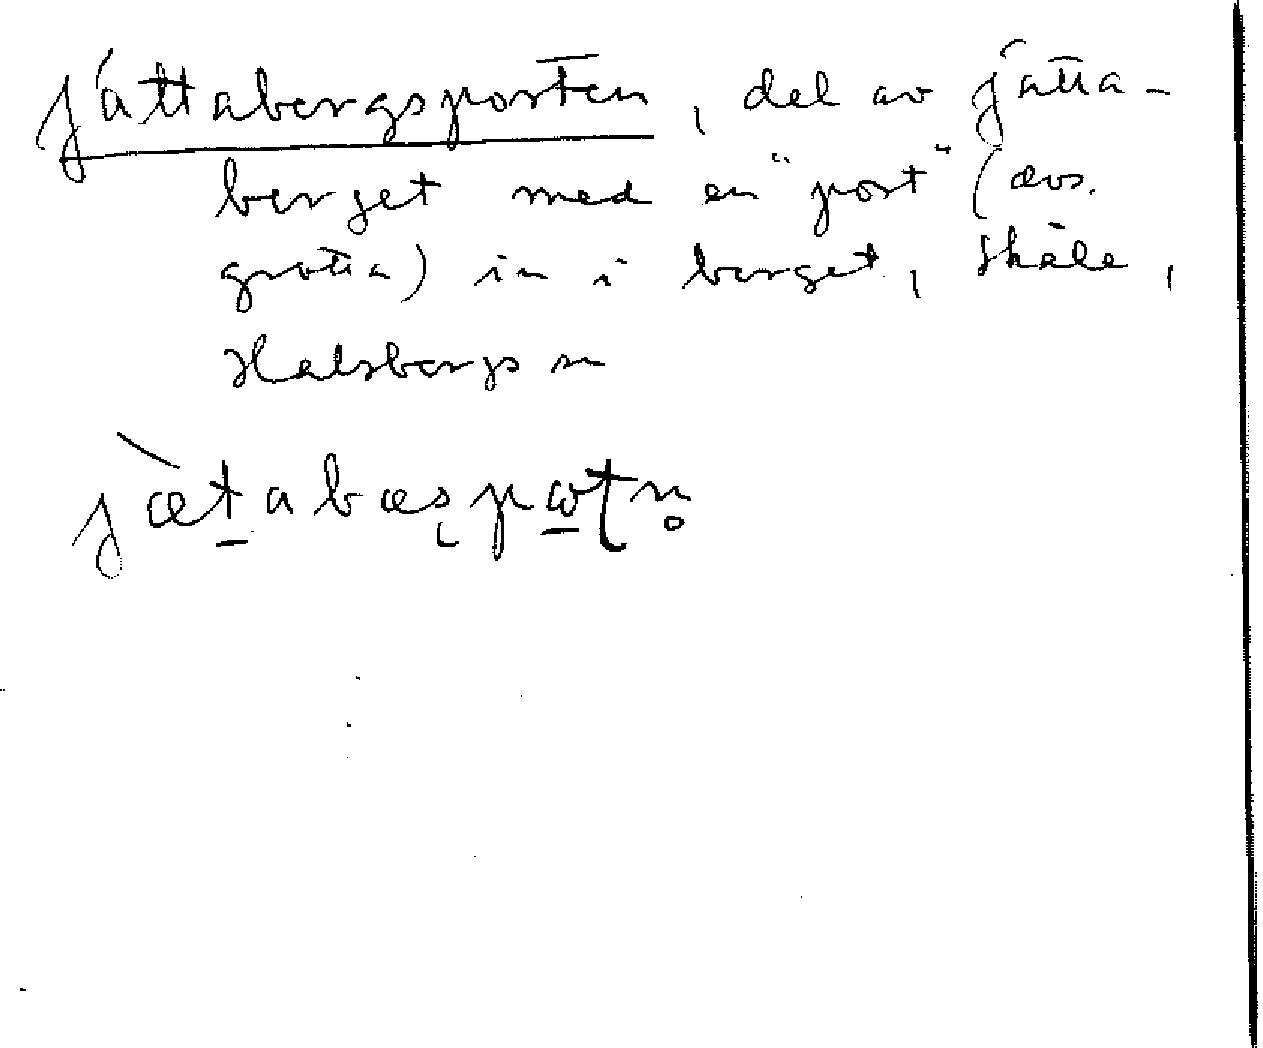 Jättabergsporten, del av Jätta-
berget med en "port" (avs.
grotta) in i berget, Skåle,
Halsbergs sn
jæt̲abæşpω̲ʈn̥